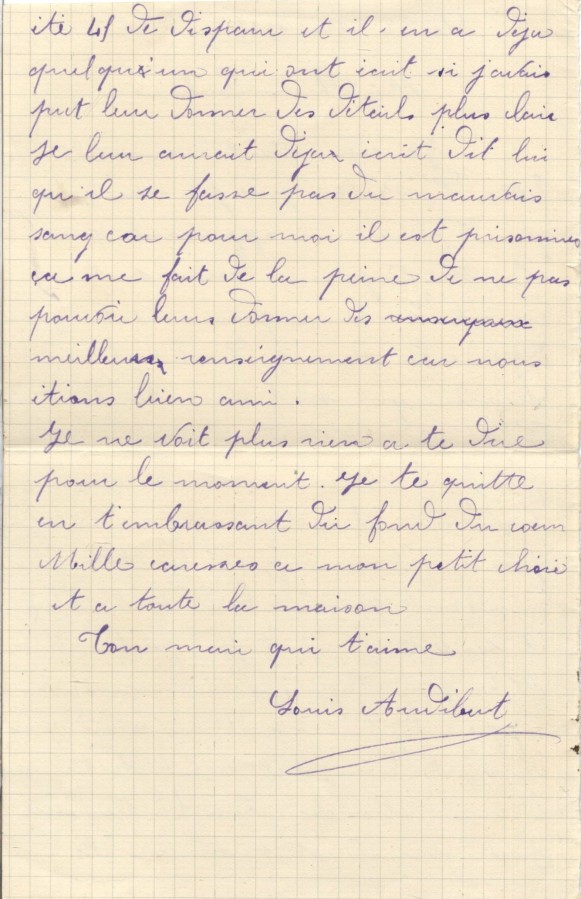 ité 45 de disparu et il en a deja
quelqu'un qui ont écrit si j'avais
put leur donner des détails plus clair
je leur aurait deja écrit dit lui
qu'il se fasse pas du mauvais
sang car pour moi il est prisonnier
ça me fait de la peine de ne pas
pouvoir leurs donner des
meilleurs renseignement car nous
itions bien ami.
Je ne voit plus rien a te dire
pour le moment. Je te quitte
en t'embrassant du fond du cœur
Mille caresses a mon petit chéri
et a toute la maison
Ton mari qui t'aime
Louis Audibert